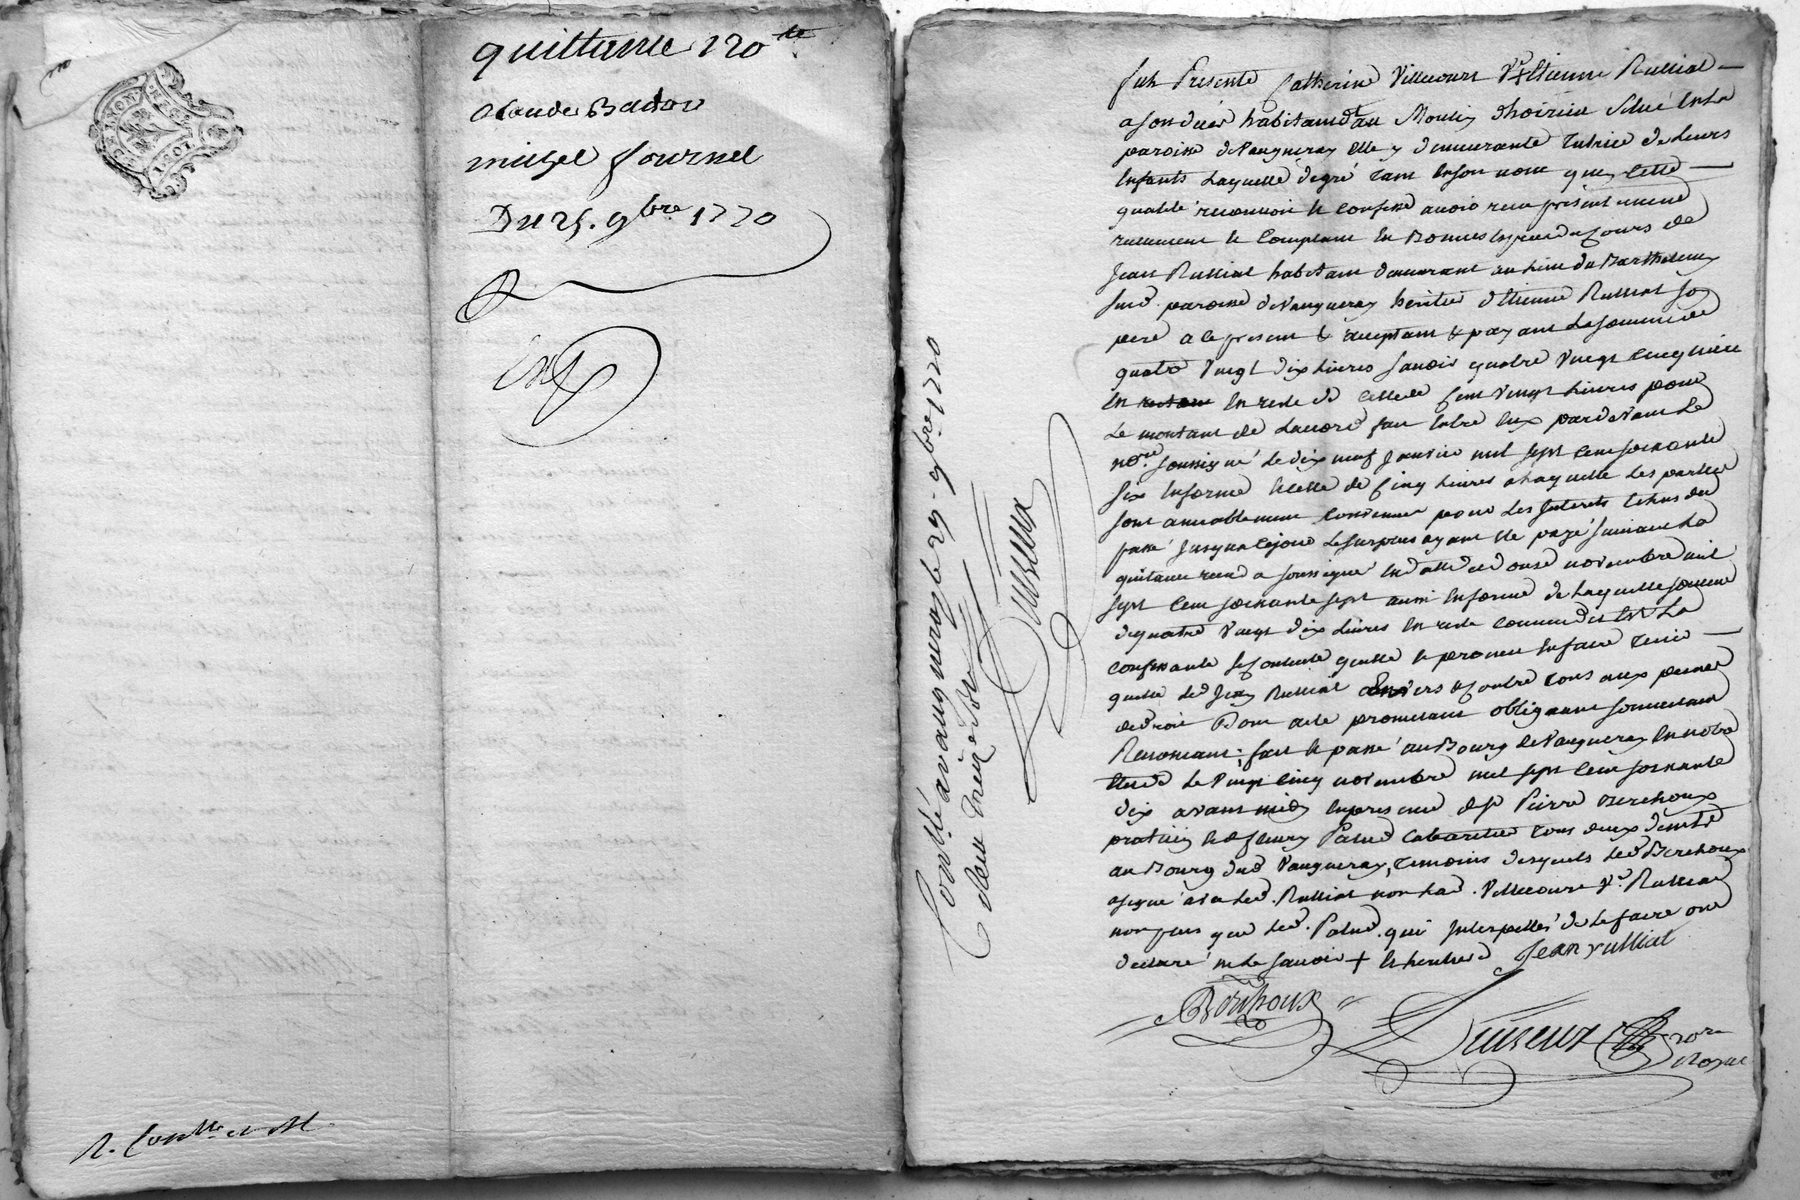 quittance 120 lt
Claude Bador
michel fournel
Du 25. 9bre 1770
R. Conlle et M.
fut Presente Catherine Villecourt Ve d'Etienne Rulliat
a son deces habitant au Moulin situé en la
paroisse de Vaugneray elle y demeurante Tutrice de Leurs
Enfants Laquelle de gré tant en son nom que cette
qualité reconnoit et confesse avoir receu presentement
reellement et Comptant en Bonnes Espèces du Cours de
Jean Rulliat habitant demeurant au lieu du Barthelemy
sud. paroisse de Vaugneray heritier d'Etienne Rulliat son
pere a ce present & acceptant & payant La somme de
quatre Vingt dix Livres savoir quatre Vingt Cinq Livres
En reste de Celle de Cent Vingt Livres pour
Le montant de Laccord fait Entre Eux pardevant Le
nore. soussigné Le dix neuf Janvier mil sept Cent soixante
six Informe et Celle de Cinq Livres a Laquelle Les parties
sont amiablement Convenues pour Les Interets Echus du
passé Jusqua ce jour Le surplus ayant été payé suivant La
quitance receu a soussigné En datte du onze novembre mil
sept Cent soixante sept aussi En forme de Laquelle somme
de quatre Vingt dix Livres En reste comme dit Est La
confessante se contente quitte et promet En faire Tenir
quitte led. Jean Rulliat Envers & contre Tous aux peines
de droit Dont acte promettant obligeant soumettant
Renoncant; fait et passé au Bourg de Vaugneray En notre
Etude Le Vingt Cinq novembre mil sept Cent soixante
dix avant midy En presence de sr Pierre Berchoux
praticien et de fleury Palud Cabaretier Tous deux demts
au Bourg dud Vaugneray, Temoins desquels led Berchoux
a signé avec led. Rulliat non lad. Villecourt Ve. Rulliat
non plus que led. Palud. qui Interpellés de Le faire ont
declaré ne Le savoir + Jean rulliat
Berchoux
nore
Royal
Conllé a vaugneray le 29. 9bre 1770